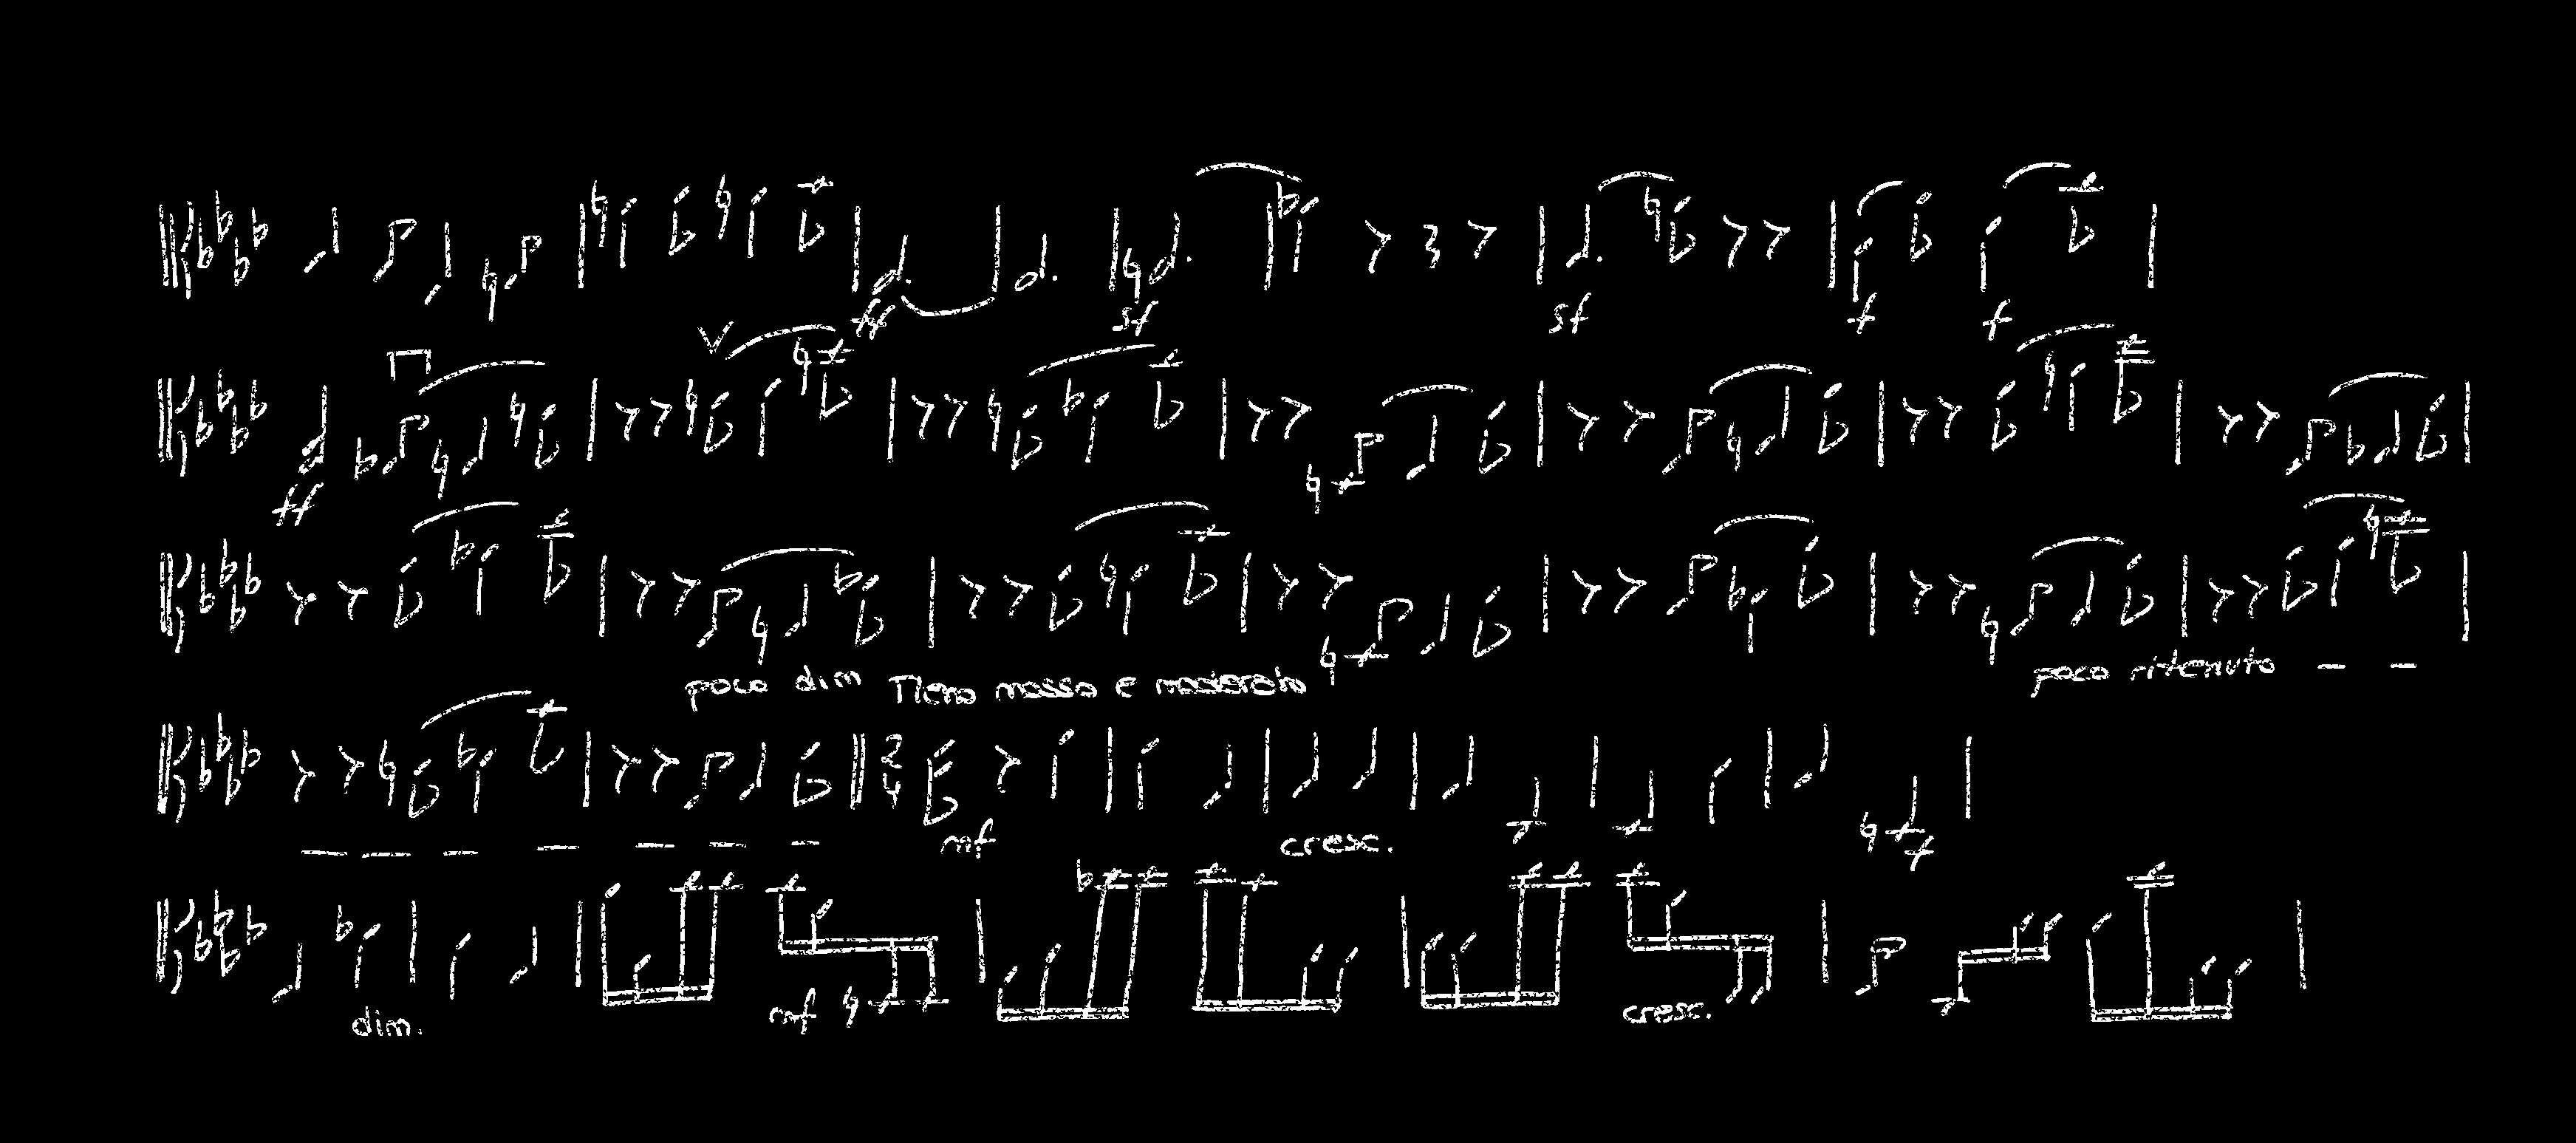 ff sf sf f f
ff
poco dim Meno mosso e moderato poco ritenuto - -
2 4 mf cresc. f
dim. mf cresc.